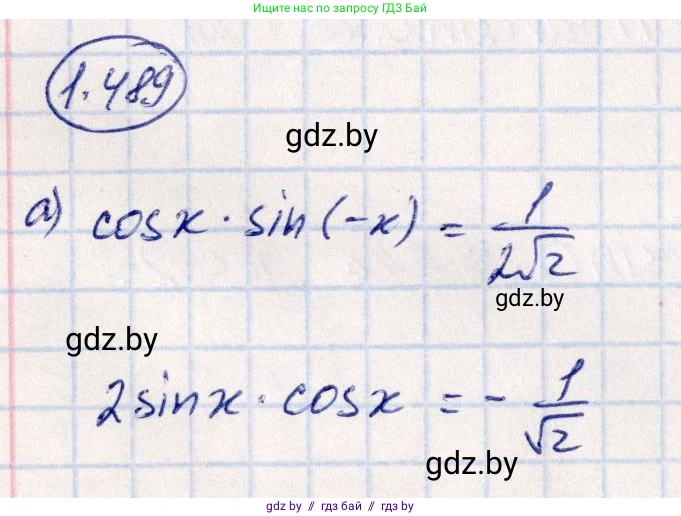 Ищите нас по запросу ГДЗ Бай
1.489
gdz.by
а) cosx · sin(-x) = 1/(2√2)
gdz.by
gdz.by
2sinx · cosx = - 1/√2
gdz.by
gdz.by // гдз бай // гдз by